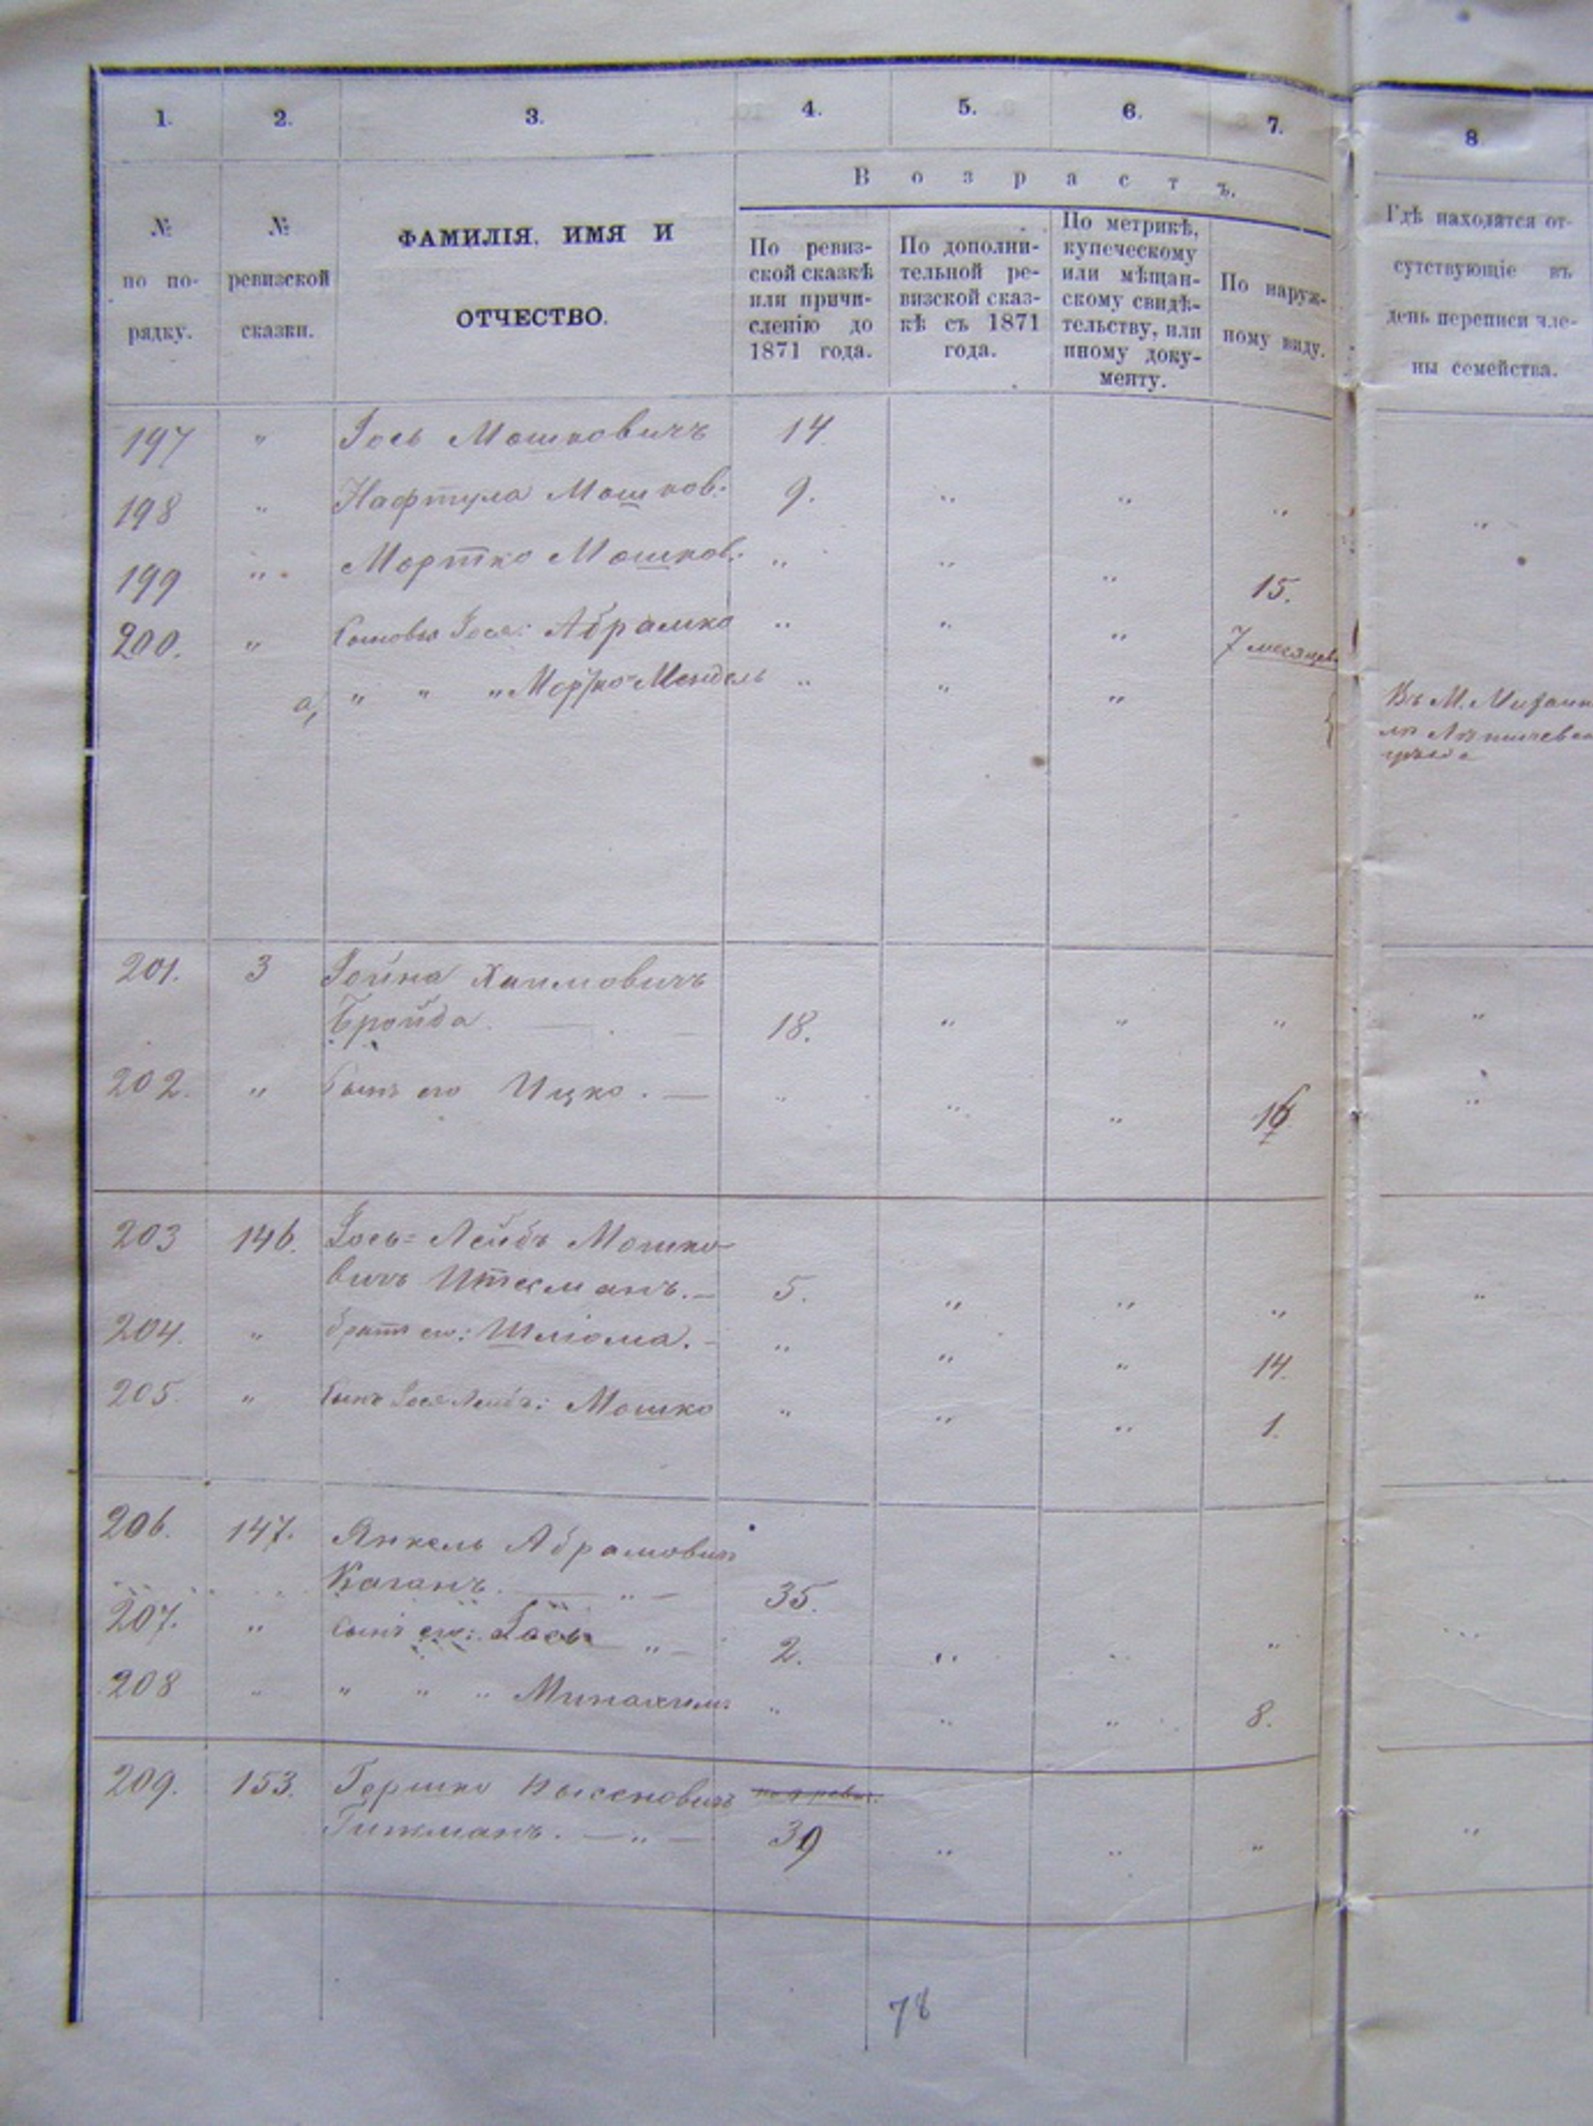 1. 2. 3. 4. 5. 6. 7. 8
Возрастъ.
№ по порядку.
№ ревизской сказки.
ФАМИЛІЯ, ИМЯ И
ОТЧЕСТВО.
По ревиз-
ской сказкѣ
или причи-
сленію до
1871 года.
По дополни-
тельной ре-
визской сказ-
кѣ съ 1871
года.
По метрикѣ,
купеческому
или мѣщан-
скому свидѣ-
тельству, или
иному доку-
менту.
По наруж-
ному виду.
Гдѣ находятся от-
сутствующіе въ
день переписи чле-
ны семейства.
197 " Іось Мошковичъ 14.
198 " Нафтула Мошков. 9. " " " "
199 " Мортко Мошков. " " " 15.
200. " Сыновья Іося: Абрамко " " " 7 месяцев
а, " " " Мортко-Мендель " " "
Въ М.
201. 3 Іойна Хаимовичъ
Бройда. 18. " " " "
202. " Сынъ его Ицко. — " " " 16 "
203 146. Іось=Лейбъ Мошко-
вичъ Итесманъ. — 5. " " " "
204. " братъ его: Шліома. — " " " 14.
205. " Сынъ Іося Лейба: Мошко " " " 1.
206. 147. Янкель Абрамовичъ
Каганъ. — " — 35.
207. " Сынъ его: Іось " — 2. " " "
208 " " " " Минахимъ " " " 8.
209. 153. Гершко Нысеновичъ
Гитманъ. — " — 39 " " " "
78